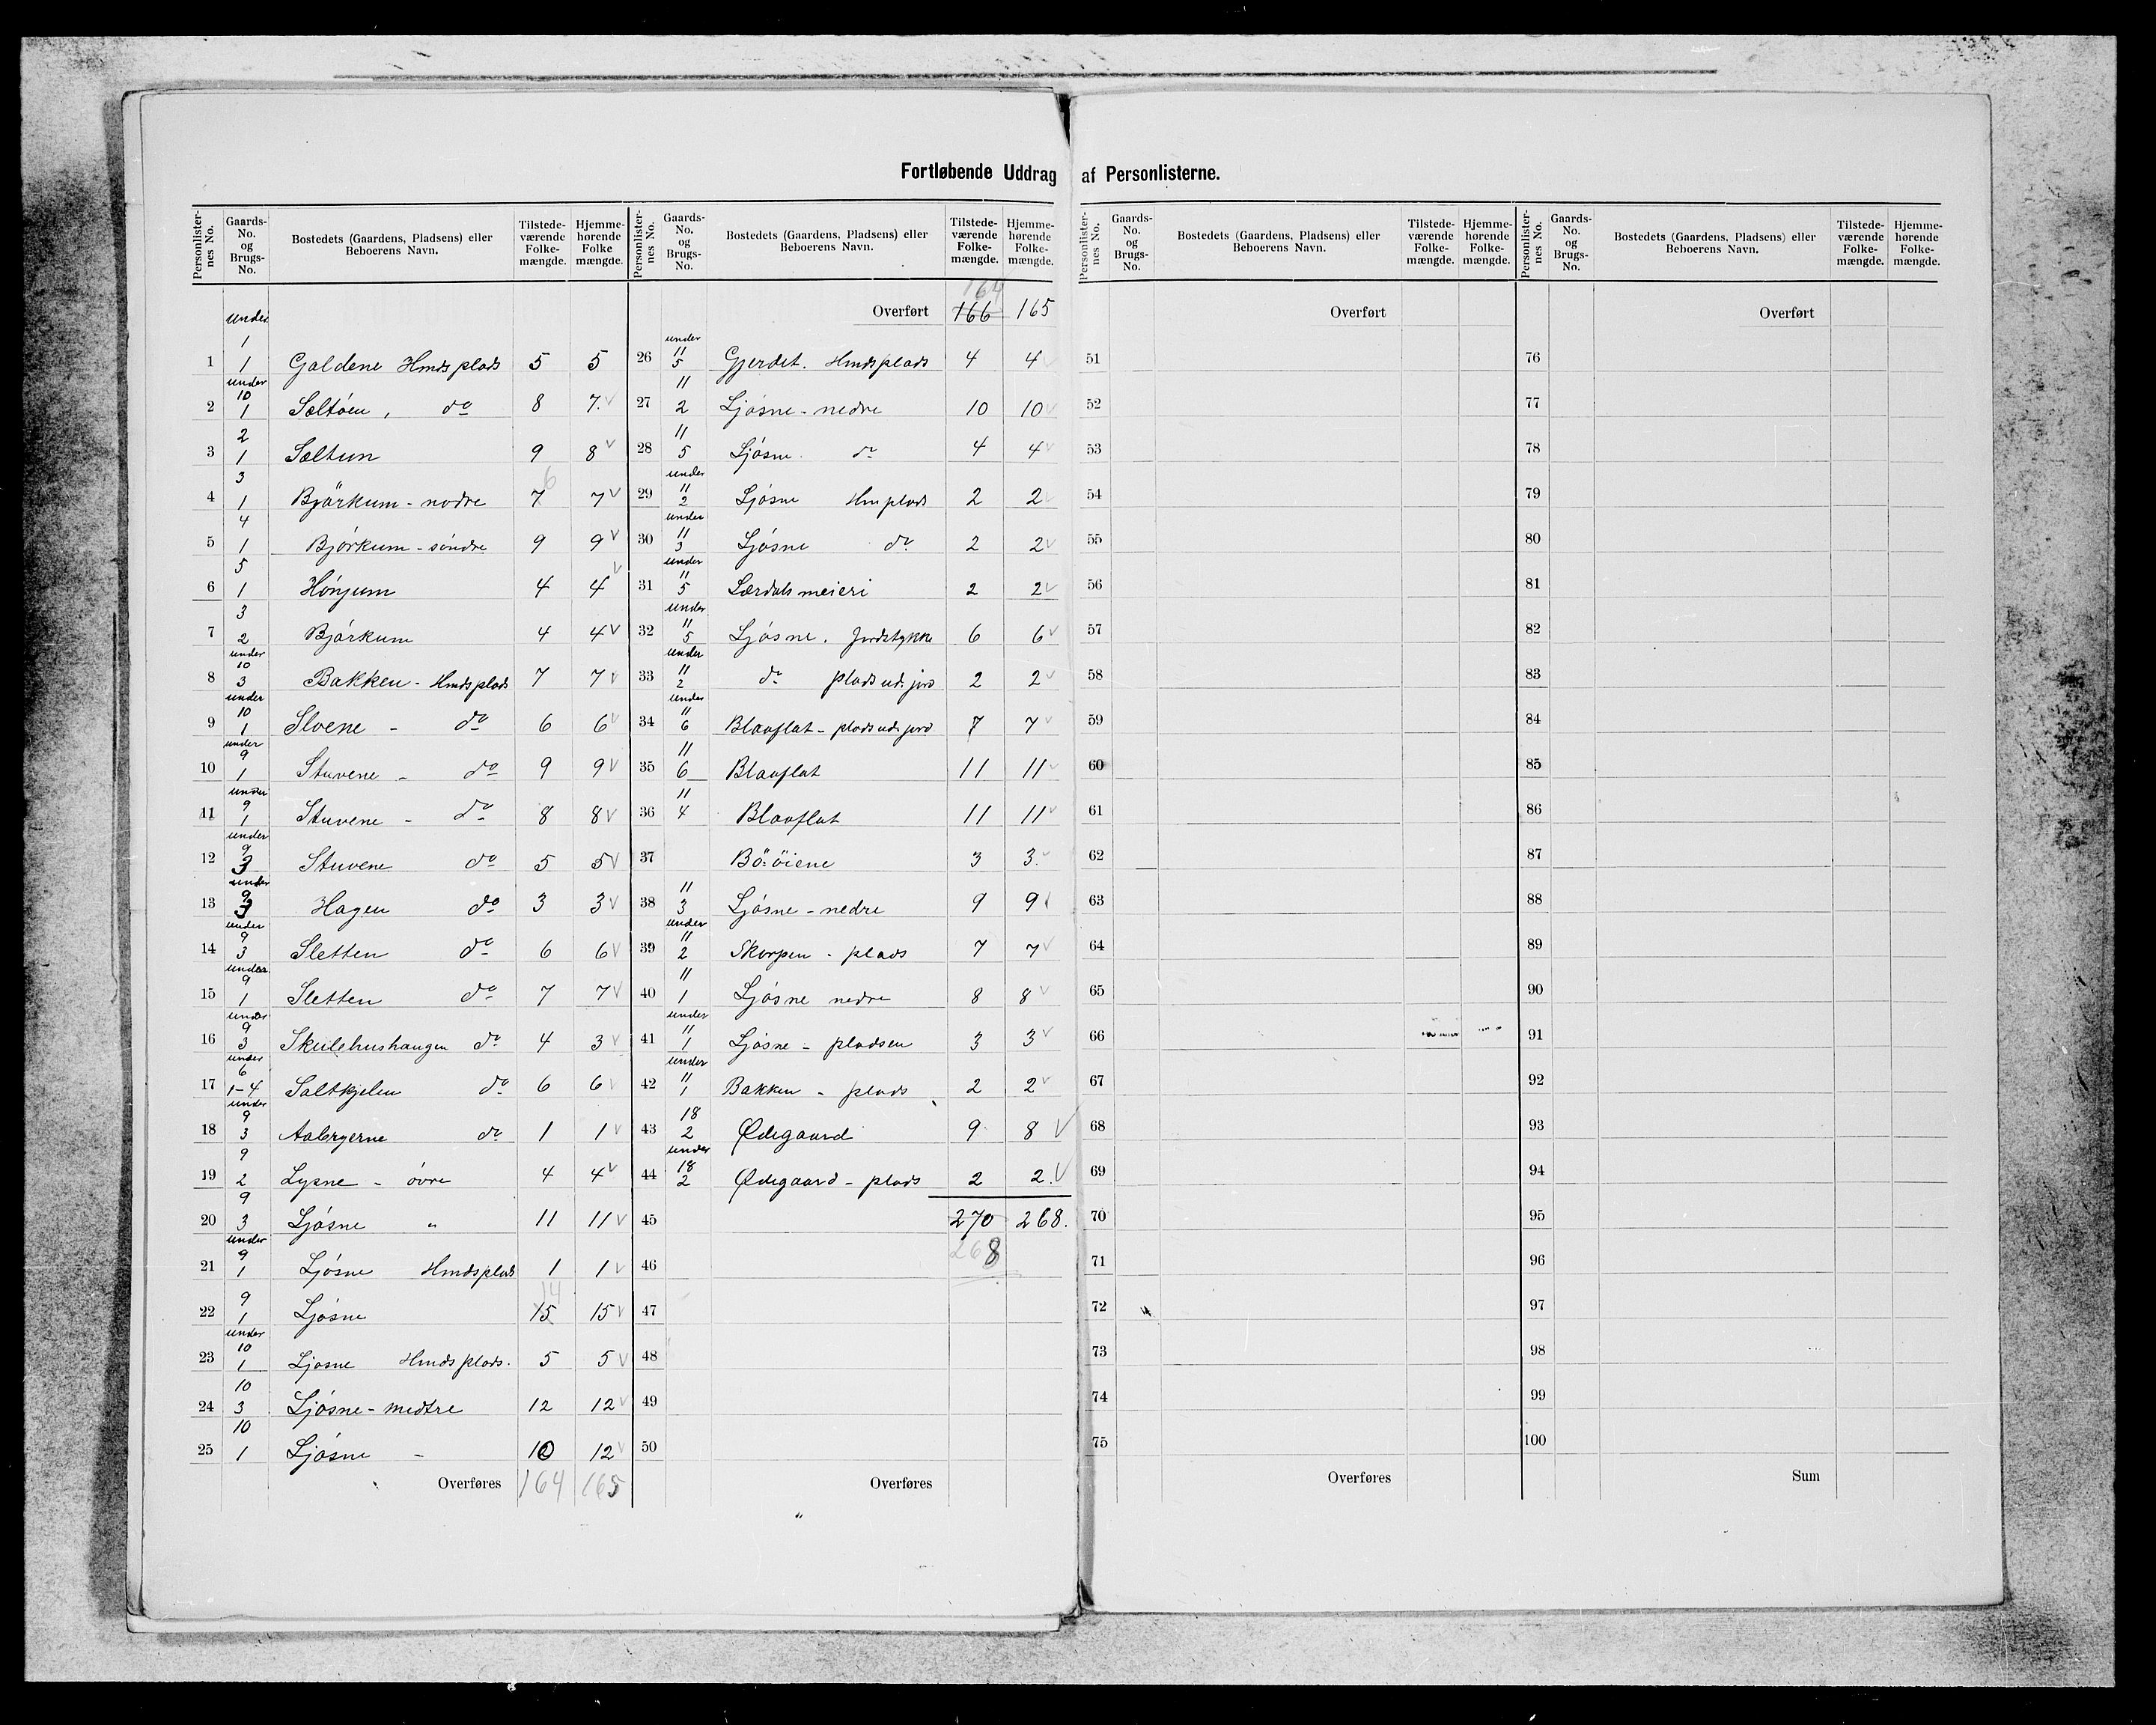 Fortløbende Uddrag af Personlisterne.
Personlister-nes No. Gaards-No. og Brugs-No. Bostedets (Gaardens, Pladsens) eller Beboerens Navn. Tilstede-værende Folke-mængde. Hjemme-hørende Folke mængde.
Personlister-nes No. Gaards-No. og Brugs-No. Bostedets (Gaardens, Pladsens) eller Beboerens Navn. Tilstede-værende Folke-mængde. Hjemme-hørende Folke-mængde.
Personlister-nes No. Gaards-No. og Brugs-No. Bostedets (Gaardens, Pladsens) eller Beboerens Navn. Tilstede-værende Folke-mængde. Hjemme-hørende Folke-mængde.
Personlister-nes No. Gaards-No. og Brugs-No. Bostedets (Gaardens, Pladsens) eller Beboerens Navn. Tilstede-værende Folke-mængde. Hjemme-hørende Folke-mængde.
1 under 1 1 Galdene Hmds plads 5 5
2 under 10 1 Sæltöen, do 8 7
3 2 1 Sæltun 9 8
4 3 1 Bjärkum - nodre 7 6 7
5 4 1 Bjórkum - söndre 9 9
6 5 1 Hónjum 4 4
7 3 2 Bjórkum 4 4
8 under 10 3 Bakken - Hmds plads 7 7
9 under 10 1 Sloene - do 6 6
10 under 9 1 Stuvene - do 9 9
11 under 9 1 Stuvene - do 8 8
12 under 9 3 Stuvene do 5 5
13 under 9 3 Hagen do 3 3
14 under 9 3 Sletten do 6 6
15 under 9 1 Sletten do 7 7
16 under 9 3 Skulehushaugen do 4 3
17 under 6 1-4 Saltkjelen do 6 6
18 under 9 3 Aabryerne do 1 1
19 9 2 Lysne - óvre 4 4
20 9 3 Ljósne " 11 11
21 under 9 1 Ljósne Hmdsplads 1 1
22 9 1 Ljósne 15 14 15
23 under 10 1 Ljosne Hmds plads. 5 5
24 10 3 Ljósne - medtre 12 12
25 10 1 Ljósne - 10 12
Overføres 164 165
Overført 166 164 165
26 under 11 5 Gjerdet. Hmdsplads 4 4
27 11 2 Ljósne - nedre 10 10
28 11 5 Ljósne. do 4 4
29 under 11 2 Ljósne Hmplads 2 2
30 under 11 3 Ljósne do 2 2
31 under 11 5 Lærdals meieri 2 2
32 under 11 5 Ljósne. Jordstykke 6 6
33 under 11 2 do plads ud. jord 2 2
34 under 11 6 Blaaflat - plads ud. jord 7 7
35 11 6 Blaaflat 11 11
36 11 4 Blaaflat 11 11
37 Böiöiene 3 3
38 11 3 Ljósne - nedre 9 9
39 under 11 2 Skorpen - plads 7 7
40 11 1 Ljósne nedre 8 8
41 under 11 1 Ljósne - pladsen 3 3
42 under 11 1 Bakken - plads 2 2
43 18 2 Ødegaard 9 8
44 under 18 2 Ødegaard - plads 2 2
45 270 268.
46 268
47
48
49
50
Overføres
Overført
51
52
53
54
55
56
57
58
59
60
61
62
63
64
65
66
67
68
69
70
71
72
73
74
75
Overføres
Overført
76
77
78
79
80
81
82
83
84
85
86
87
88
89
90
91
92
93
94
95
96
97
98
99
100
Sum